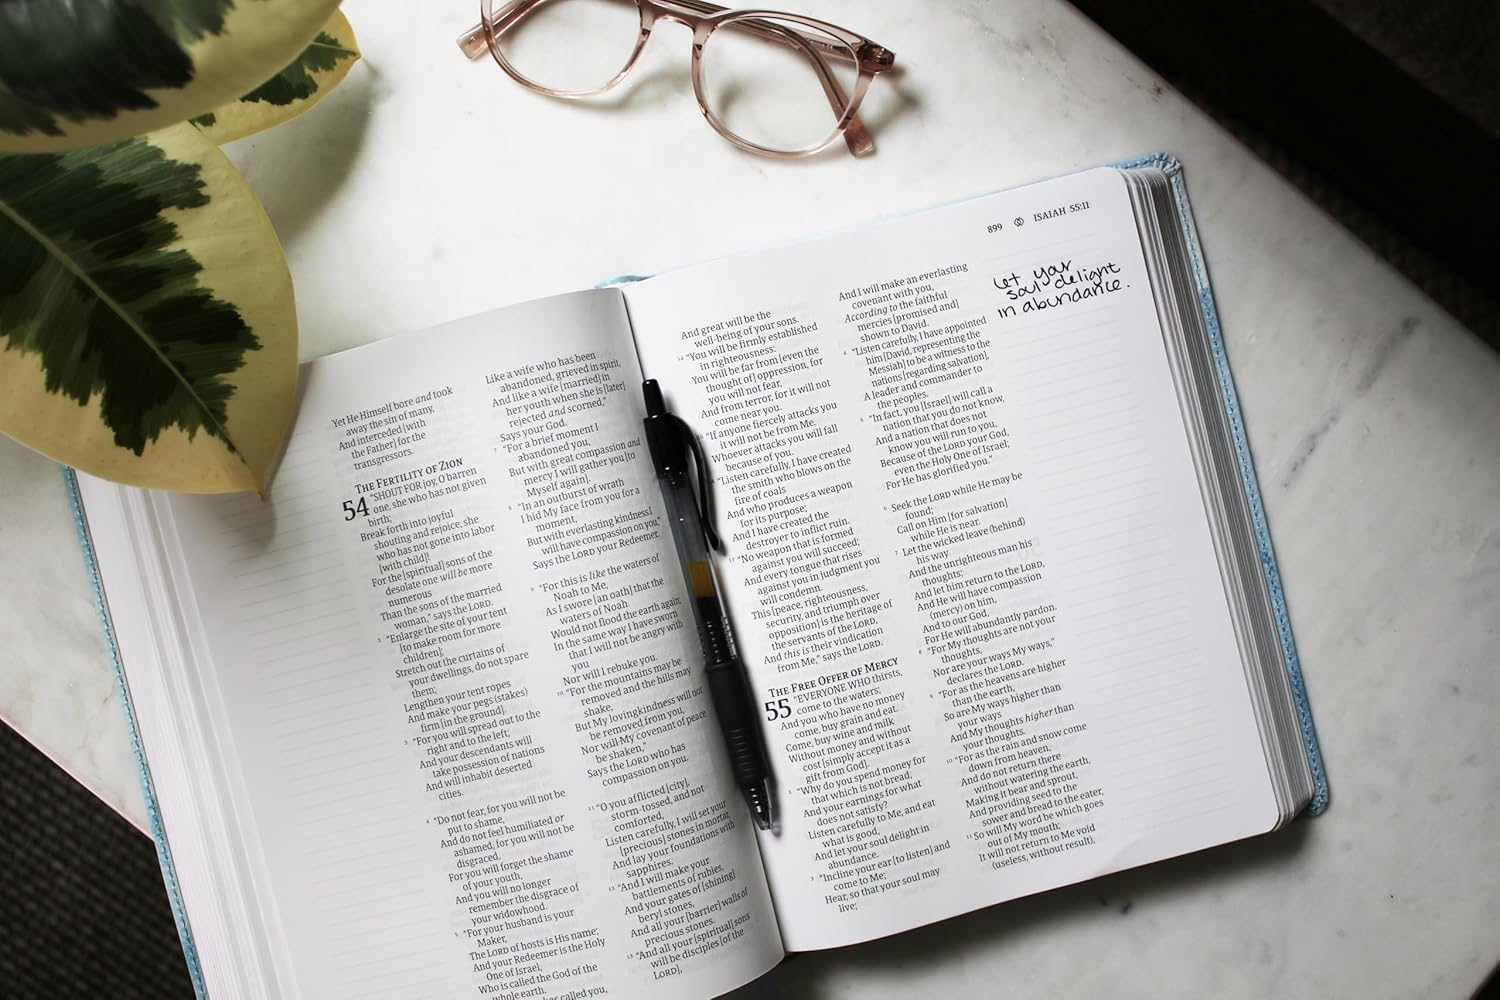 Yet He Himself bore and took
away the sin of many,
And interceded [with
the Father] for the
transgressors.
THE FERTILITY OF ZION
54 "SHOUT FOR joy, O barren
one, she who has not given
birth;
Break forth into joyful
shouting and rejoice, she
who has not gone into labor
[with child]!
For the [spiritual] sons of the
desolate one will be more
numerous
Than the sons of the married
woman," says the LORD.
2 "Enlarge the site of your tent
[to make room for more
children];
Stretch out the curtains of
your dwellings, do not spare
them;
Lengthen your tent ropes
And make your pegs (stakes)
firm [in the ground].
3 "For you will spread out to the
right and to the left;
And your descendants will
take possession of nations
And will inhabit deserted
cities.
4 "Do not fear, for you will not be
put to shame,
And do not feel humiliated or
ashamed, for you will not be
disgraced.
For you will forget the shame
of your youth,
And you will no longer
remember the disgrace of
your widowhood.
5 "For your husband is your
Maker,
The LORD of hosts is His name;
And your Redeemer is the Holy
One of Israel,
Who is called the God of the
whole earth.
has called you,
Like a wife who has been
abandoned, grieved in spirit,
And like a wife [married] in
her youth when she is [later]
rejected and scorned,"
Says your God.
7 "For a brief moment I
abandoned you,
But with great compassion and
mercy I will gather you [to
Myself again].
8 "In an outburst of wrath
I hid My face from you for a
moment,
But with everlasting kindness I
will have compassion on you,"
Says the LORD your Redeemer.
9 "For this is like the waters of
Noah to Me,
As I swore [an oath] that the
waters of Noah
Would not flood the earth again;
In the same way I have sworn
that I will not be angry with
you
Nor will I rebuke you.
10 "For the mountains may be
removed and the hills may
shake,
But My lovingkindness will not
be removed from you,
Nor will My covenant of peace
be shaken,"
Says the LORD who has
compassion on you.
11 "O you afflicted [city],
storm-tossed, and not
comforted,
Listen carefully, I will set your
[precious] stones in mortar,
And lay your foundations with
sapphires.
12 "And I will make your
battlements of rubies,
And your gates of [shining]
beryl stones,
And all your [barrier] walls of
precious stones.
13 "And all your [spiritual] sons
will be disciples [of the
LORD],
899 ISAIAH 55:11
And great will be the
well-being of your sons.
14 "You will be firmly established
in righteousness:
You will be far from [even the
thought of] oppression, for
you will not fear,
And from terror, for it will not
come near you.
"If anyone fiercely attacks you
it will not be from Me.
Whoever attacks you will fall
because of you.
"Listen carefully, I have created
the smith who blows on the
fire of coals
And who produces a weapon
for its purpose;
And I have created the
destroyer to inflict ruin.
17 "No weapon that is formed
against you will succeed;
And every tongue that rises
against you in judgment you
will condemn.
This [peace, righteousness,
security, and triumph over
opposition] is the heritage of
the servants of the LORD,
And this is their vindication
from Me," says the LORD.
THE FREE OFFER OF MERCY
55 "EVERYONE WHO thirsts,
come to the waters;
And you who have no money
come, buy grain and eat.
Come, buy wine and milk
Without money and without
cost [simply accept it as a
gift from God].
2 "Why do you spend money for
that which is not bread,
And your earnings for what
does not satisfy?
Listen carefully to Me, and eat
what is good,
And let your soul delight in
abundance.
3 "Incline your ear [to listen] and
come to Me;
Hear, so that your soul may
live;
And I will make an everlasting
covenant with you,
According to the faithful
mercies [promised and]
shown to David.
4 "Listen carefully, I have appointed
him [David, representing the
Messiah] to be a witness to the
nations [regarding salvation],
A leader and commander to
the peoples.
5 "In fact, you [Israel] will call a
nation that you do not know,
And a nation that does not
know you will run to you,
Because of the LORD your God,
even the Holy One of Israel;
For He has glorified you."
6 Seek the LORD while He may be
found;
Call on Him [for salvation]
while He is near.
7 Let the wicked leave (behind)
his way
And the unrighteous man his
thoughts;
And let him return to the LORD,
And He will have compassion
(mercy) on him,
And to our God,
For He will abundantly pardon.
8 "For My thoughts are not your
thoughts,
Nor are your ways My ways,"
declares the LORD.
9 "For as the heavens are higher
than the earth,
So are My ways higher than
your ways
And My thoughts higher than
your thoughts.
10 "For as the rain and snow come
down from heaven,
And do not return there
without watering the earth,
Making it bear and sprout,
And providing seed to the
sower and bread to the eater,
11 So will My word be which goes
out of My mouth;
It will not return to Me void
(useless, without result),
Let your
soul delight
in abundance.